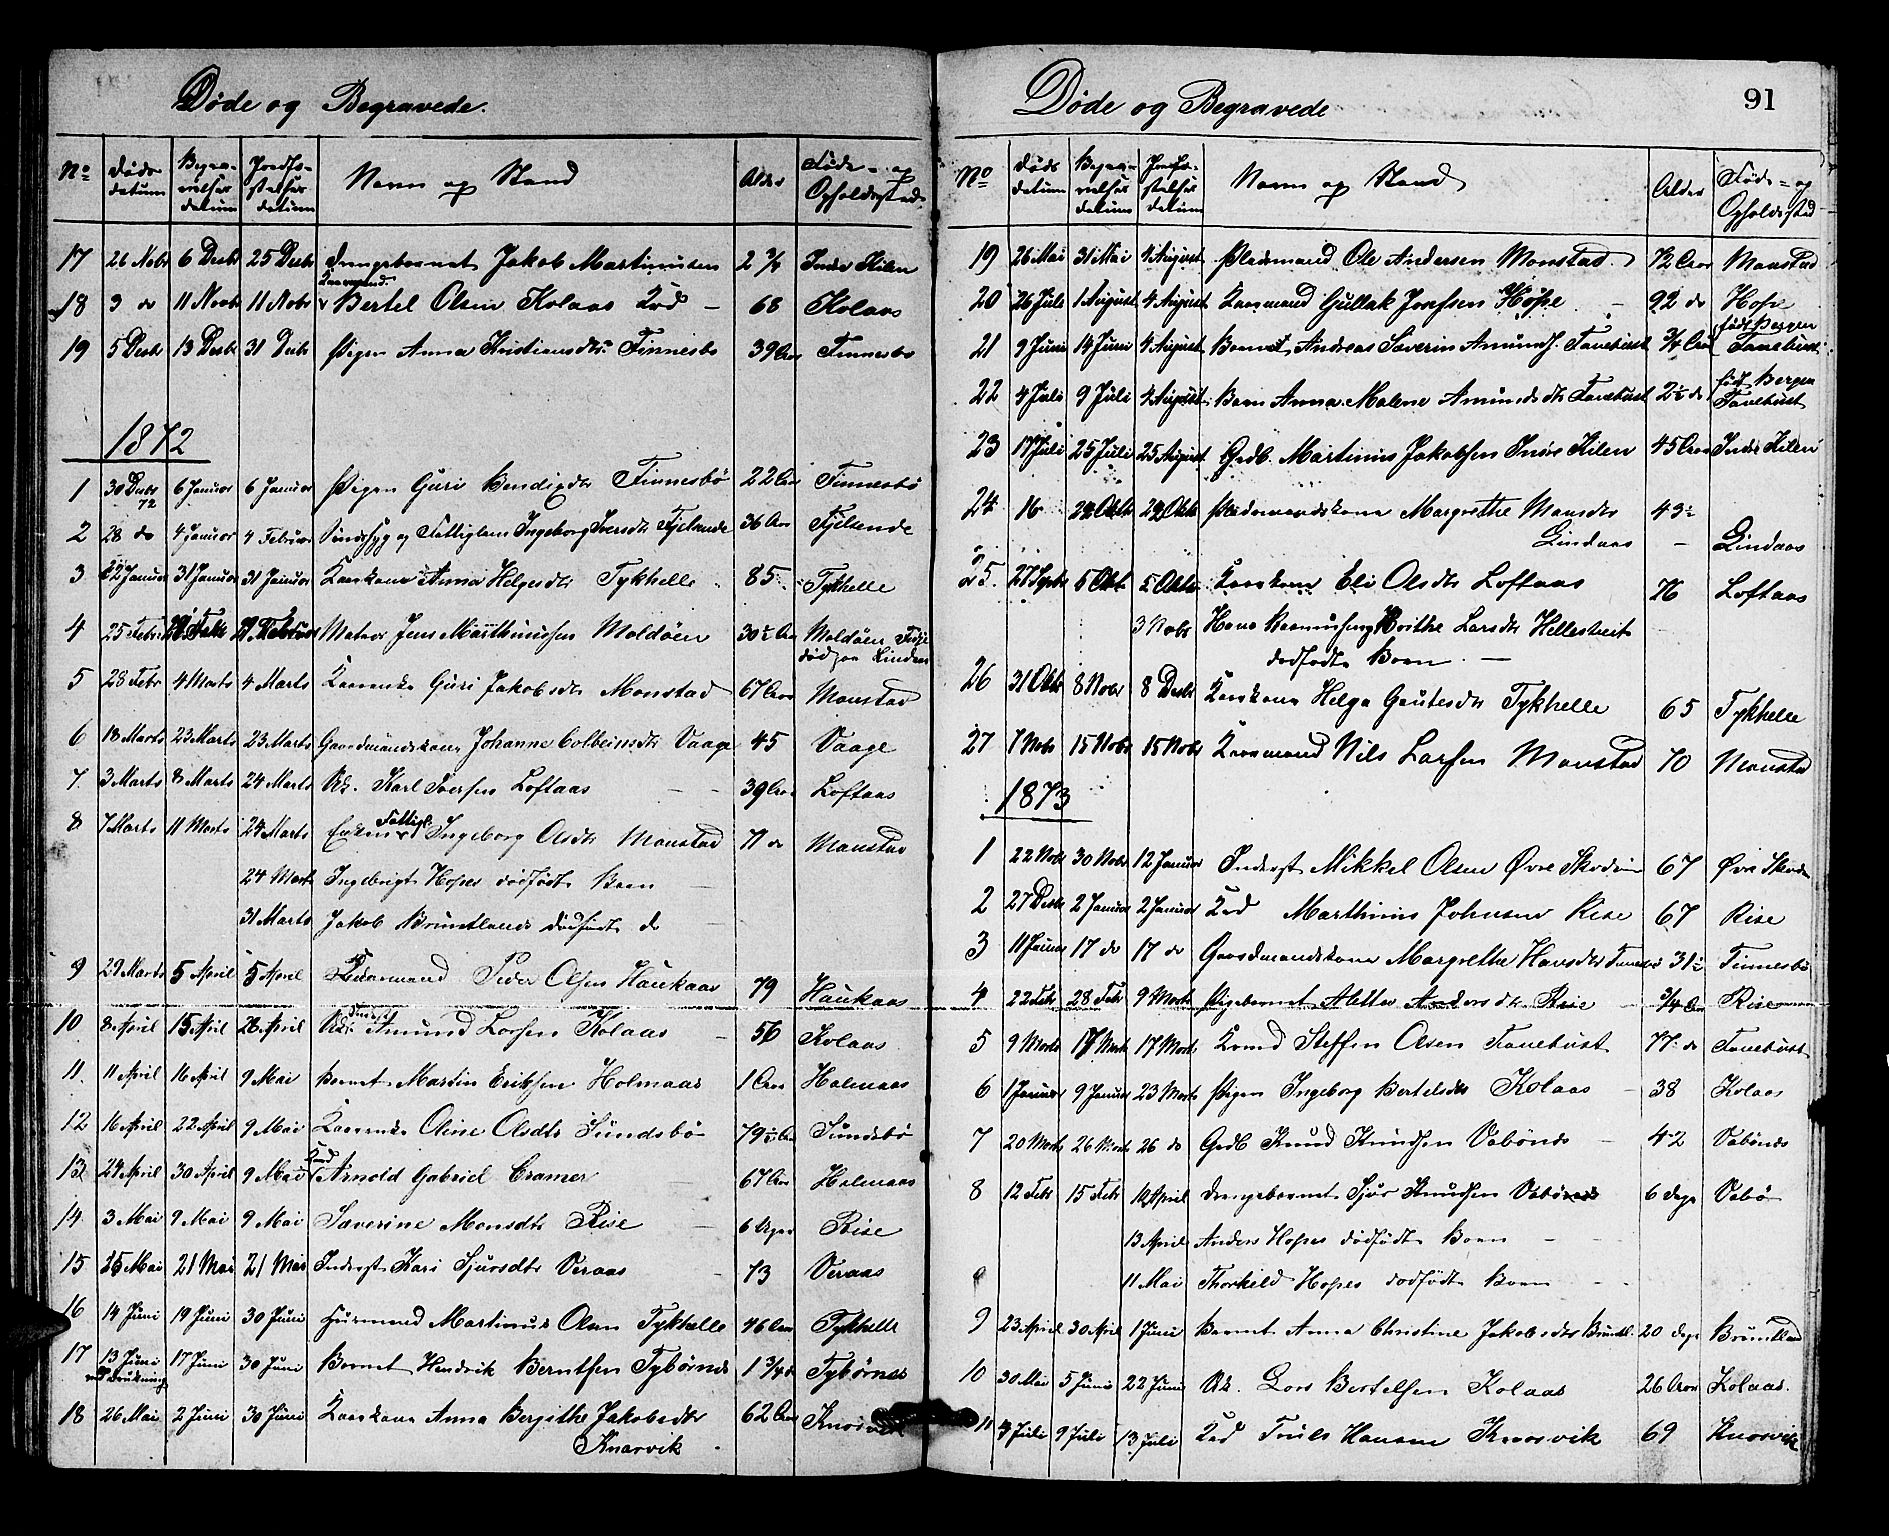 Døde og Begravede.
No Døds datum Begravelses datum Jordfæstelses datum Navn og Stand Alder Føde- og Opholdssted
17 26 Nobr 6 Desbr 25 Desbr Drengebarnet Jakob Martinusen 2 3/4 Indre Kilen
Kaarmand
18 3 do 11 Novbr 11 Nobr Bertel Olsen Kolaas Krd — 68 Kolaas
19 5 Desbr 13 Desbr 31 Desbr Pigen Anna Kristiansdtr Finnesbø 39 Aar Finnesbø
1872
1 30 Desbr 72 6 Januar 6 Januar Pigen Guri Bendixdtr Finnesbø 22 Aar Finnesbø
2 28 do 4 Januar 4 Februar Sindssyg og Fattiglem Ingeborg Iversdtr Fjelande 36 Aar Fjelande
3 22 Januar 31 Januar 31 Januar Kaarkone Anna Helgesdtr Tykhelle 85 Tykhelle
4 25 Febr Matros Jens Marthinussen Moldøen 30 1/2 Aar Moldøen
død paa Lindaas
5 28 Febr 4 Marts 4 Marts Kaarenke Guri Jakobsdtr Monstad 67 Aar Monstad
6 18 Marts 23 Marts 23 Marts Gaardmandskone Johanne Colbeinsdtr Vaage 45 Vaage
7 3 Marts 8 Marts 24 Marts Uk. Karl Iversen Loftaas — 39 Aar Loftaas
8 7 Marts 11 Marts 24 Marts Enken Fattigl. Ingeborg Olsdtr Monstad 71 do Monstad
24 Marts Ingebrigt Hopes dødfødt Barn —
31 Marts Jakob Bruntlands dødfødt do
9 29 Marts 5 April 5 April Kaarmand Peder Olsen Haukaas 79 Haukaas
10 8 April 15 April 28 April Amund Larsen Kolaas — 56 Kolaas
11 11 April 16 April 9 Mai Barnet Martin Eriksen Holmaas 1 Aar Holmaas
12 16 April 22 April 9 Mai Kaarenke Oline Olsdtr Sundsbø 79 1/2 Aar Sundsbø
13 24 April 30 April 9 Mai Krd Arnold Gabriel Cramer 67 Aar Holmaas
14 3 Mai 9 Mai 9 Mai Saverine Monsdtr Rise — 6 Uger Rise
15 15 Mai 21 Mai 21 Mai Inderst Kari Sjursdtr Veraas — 73 Veraas
16 14 Juni 19 Juni 30 Juni Husmand Martinus Olsen Tykhelle 46 Aar Tykhelle
17 13 Juni ved Drukning 17 Juni 30 Juni Barnet Hendrik Berntsen Tybørnes 1 3/4 Tybørnes
18 26 Mai 2 Juni 30 Juni Kaarkone Anna Bergithe Jakobsdtr 62 Aar Knarvik
Knarvik
Døde og Begravede 91
No Døds datum Begravelses datum Jordfæstelses datum Navn og Stand Alder Føde- og Opholdssted
19 26 Mai 31 Mai 4 August Pladsmand Ole Andersen Monstad 72 Aar Monstad
20 26 Juli 1 August 4 August Kaarmand Gullak Josefsen Hope — 92 do Hope
21 9 Juni 14 Juni 4 August Barnet Andreas Saverin Amunds. Fanebust 3/4 Aar født Bergen Fanebust
22 4 Juli 9 Juli 4 August Barn Anna Malene Amundsdtr Fanebust 2 1/2 do født Bergen Fanebust
23 17 Juli 25 Juli 25 August Grdb. Martinus Jakobsen Indre Kilen 45 Aar Indre Kilen
24 16 Oktbr Oktbr Pladsmandskone Margrethe Monsdtr 43 1/2
Lindaas — Lindaas
25 27 Septbr 5 Oktr 5 Oktbr Kaarkone Eli Olsdtr Loftaas 76 Loftaas
3 Nobr Hans Rasmussen Larsdtr Hellestveit
dødfødte Barn —
26 31 Oktbr 8 Nobr 8 Desbr Kaarkone Helga Gautesdtr Tykhelle 65 Tykhelle
27 7 Nobr 15 Nobr 15 Nobr Kaarmand Nils Larsen Monstad 70 Monstad
1873
1 22 Nobr 30 Nobr 12 Januar Inderst Mikkel Olsen Øvre Skodvin 67 Øvre Skodvin
2 27 Desbr 2 Januar 2 Januar Krd Marthinus Johnsen Rise 67 Rise
3 11 Januar 17 do 17 do Gaardmandskone Margrethe Hansdtr Finnesbø 31 1/2 Finnesbø
4 22 Febr 28 Febr 9 Marts Pigebarnet Alette Andersdtr Rise — 3/4 Aar Rise
5 9 Marts 17 Marts 17 Marts Krmd Steffen Olsen Fanebust 77 do Fanebust
6 1 Januar 9 Januar 23 Marts Pigen Ingeborg Bertelsdtr Kolaas — 38 Kolaas
7 20 Marts 26 Marts 26 do Grdb Knud Knudsen Vabønes — 42 Vabønes
8 12 Febr 15 Febr 14 April Drengebarnet Sjur Knudsen Vabønes 6 dage Vabø
13 April Anders Hopes dødfødte Barn —
11 Mai Thorkild Hopes dødfødte Barn —
9 23 April 30 April 1 Juni Barnet Anna Christine Jakobsdtr Bruntl. 20 dage Bruntland
10 30 Mai 5 Juni 22 Juni Uk. Lars Bertelsen Kolaas 26 Aar Kolaas.
11 4 Juli 9 Juli 13 Juli Krd Truls Hansen Knarvik 69 Knarvik